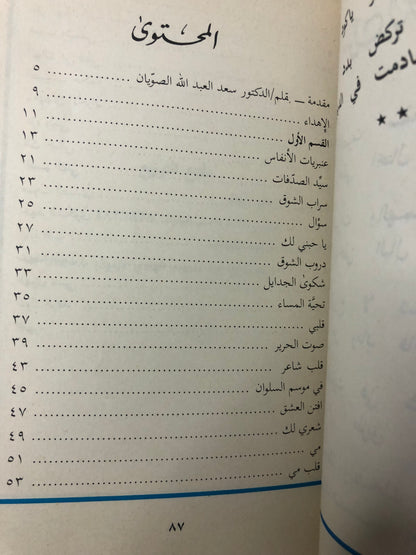 المحتوى
مقدمة — بقلم/الدكتور سعد العبد الله الصويان ٥
الإهداء ٩
القسم الأول ١١
عنبريات الأنفاس ١٣
سيِّد الصدَفات ٢١
سراب الشوق ٢٣
سؤال ٢٥
يا حبني لك ٢٧
دروب الشوق ٣١
شكوى الجدايل ٣٣
تحيَّة المساء ٣٥
قلبي ٣٧
صوت الحرير ٣٩
قلب شاعر ٤٣
في موسم السلوان ٤٥
افتن العشق ٤٧
شعري لك ٤٩
مي ٥١
قلب مي ٥٣
٨٧
تركض